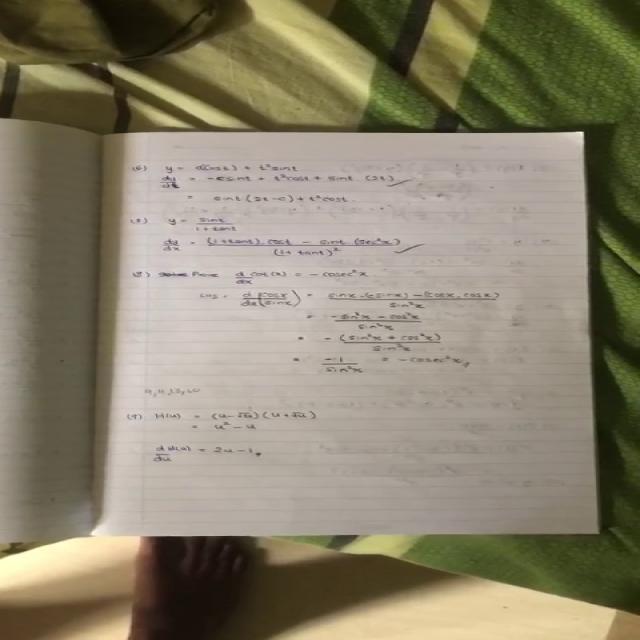 (6) y = c(cos t) + t²sint
dy/dt = -csint + t²cost + sint (2t)
= sint (2t-c) + t²cost.
y = sint/1+tant
dy/dx = (1+tant).cost - sint (sec²x)/(1+tant)²
Prove d/dx cot(x) = -cosec²x
LHS = d/dx (cosx/sinx) = sinx.(-sinx) - (cosx.cosx)/sin²x
= -sin²x - cos²x/sin²x
= -(sin²x + cos²x)/sin²x
= -1/sin²x = -cosec²x,
H(u) = (u-√u)(u+√u)
= u² - u
d H(u)/du = 2u - 1